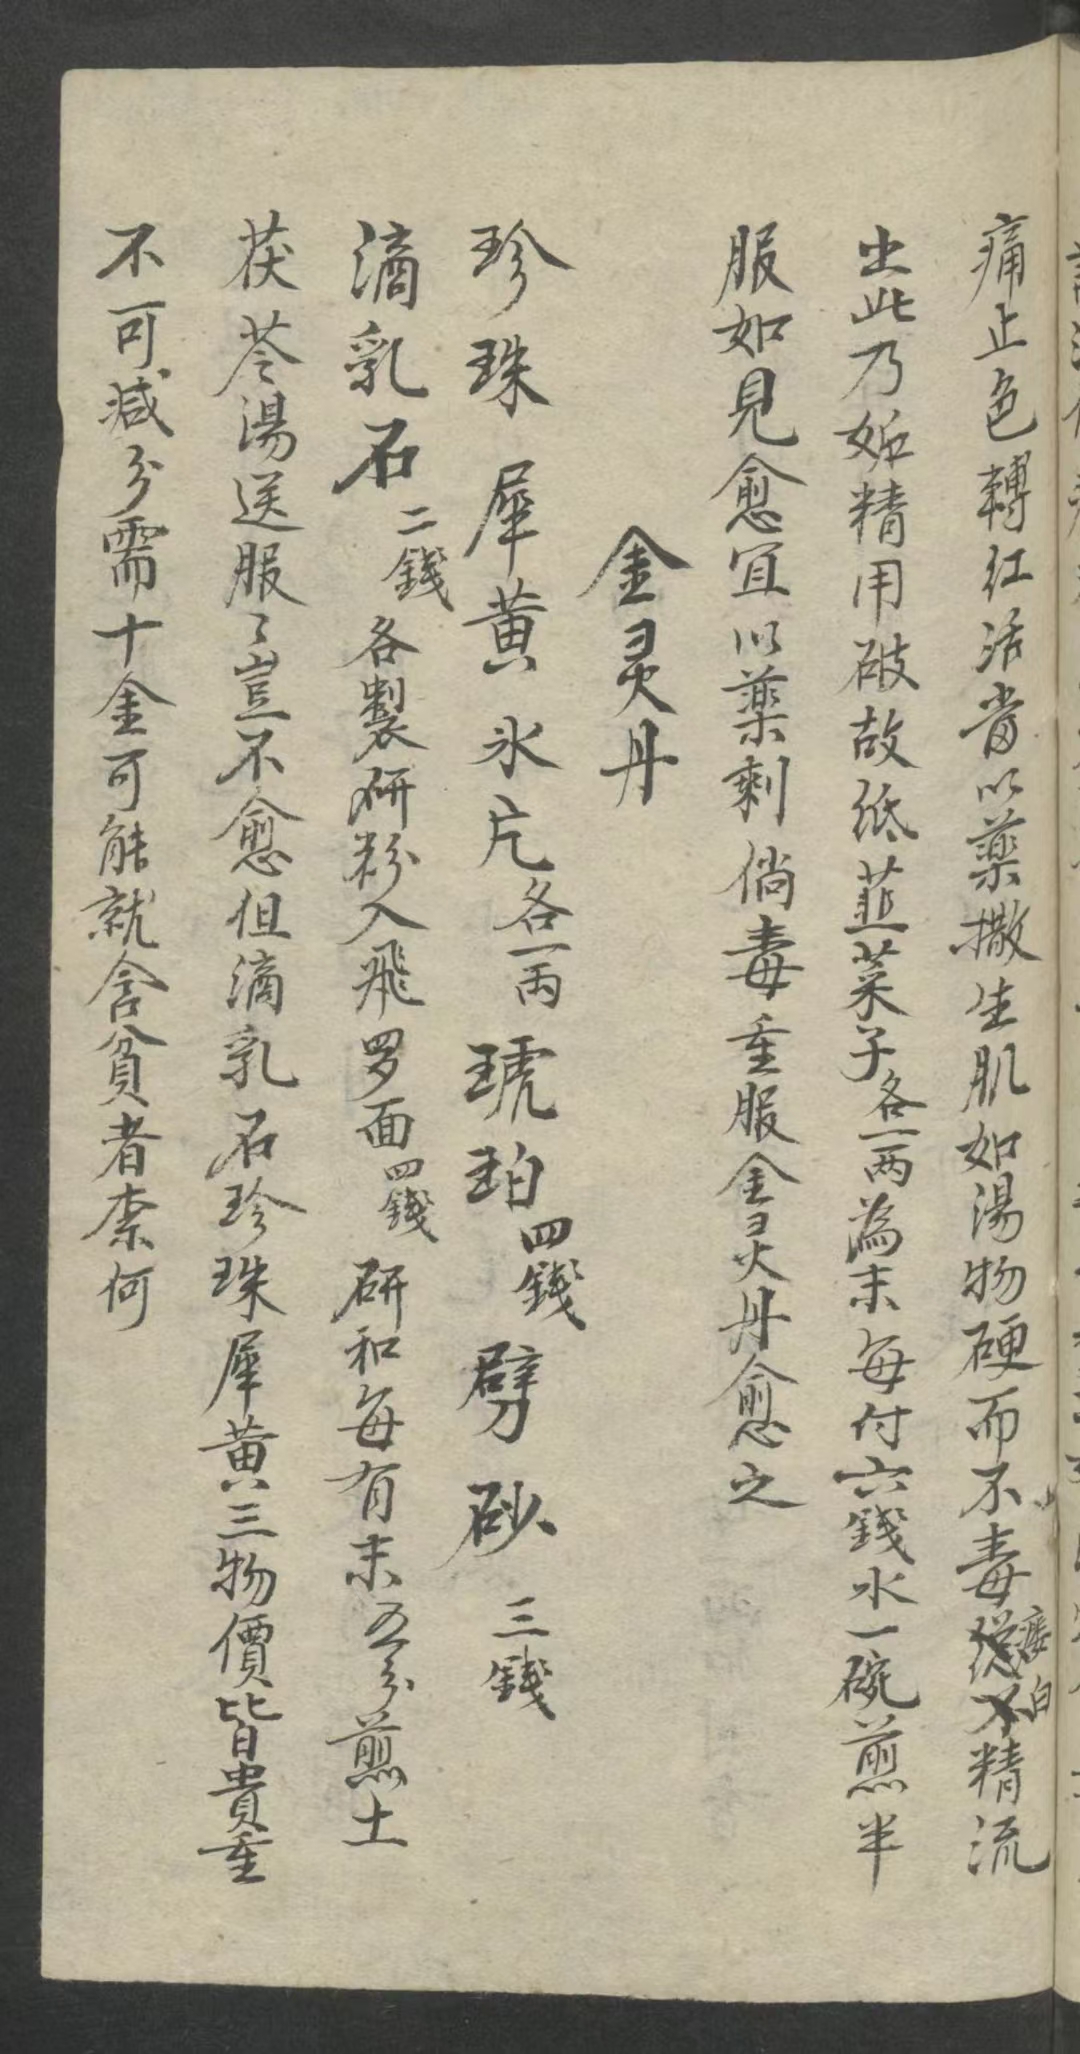 痛止色轉红活當以藥撒生肌如湯物硬而不毒痿白精流
出此乃姤精用破故纸韮菜子各一两為末每付六錢水一碗煎半
服如見愈宜以藥刺倘毒重服金灵丹愈之
金灵丹
珍珠犀黄氷片各一两琥珀四錢劈砂三錢
滴乳石二錢各製研粉入飛罗面四錢研和每有末五分煎土
茯苓湯送服〻豈不愈但滴乳石珍珠犀黄三物價皆貴重
不可减分需十金可能就含貧者柰何